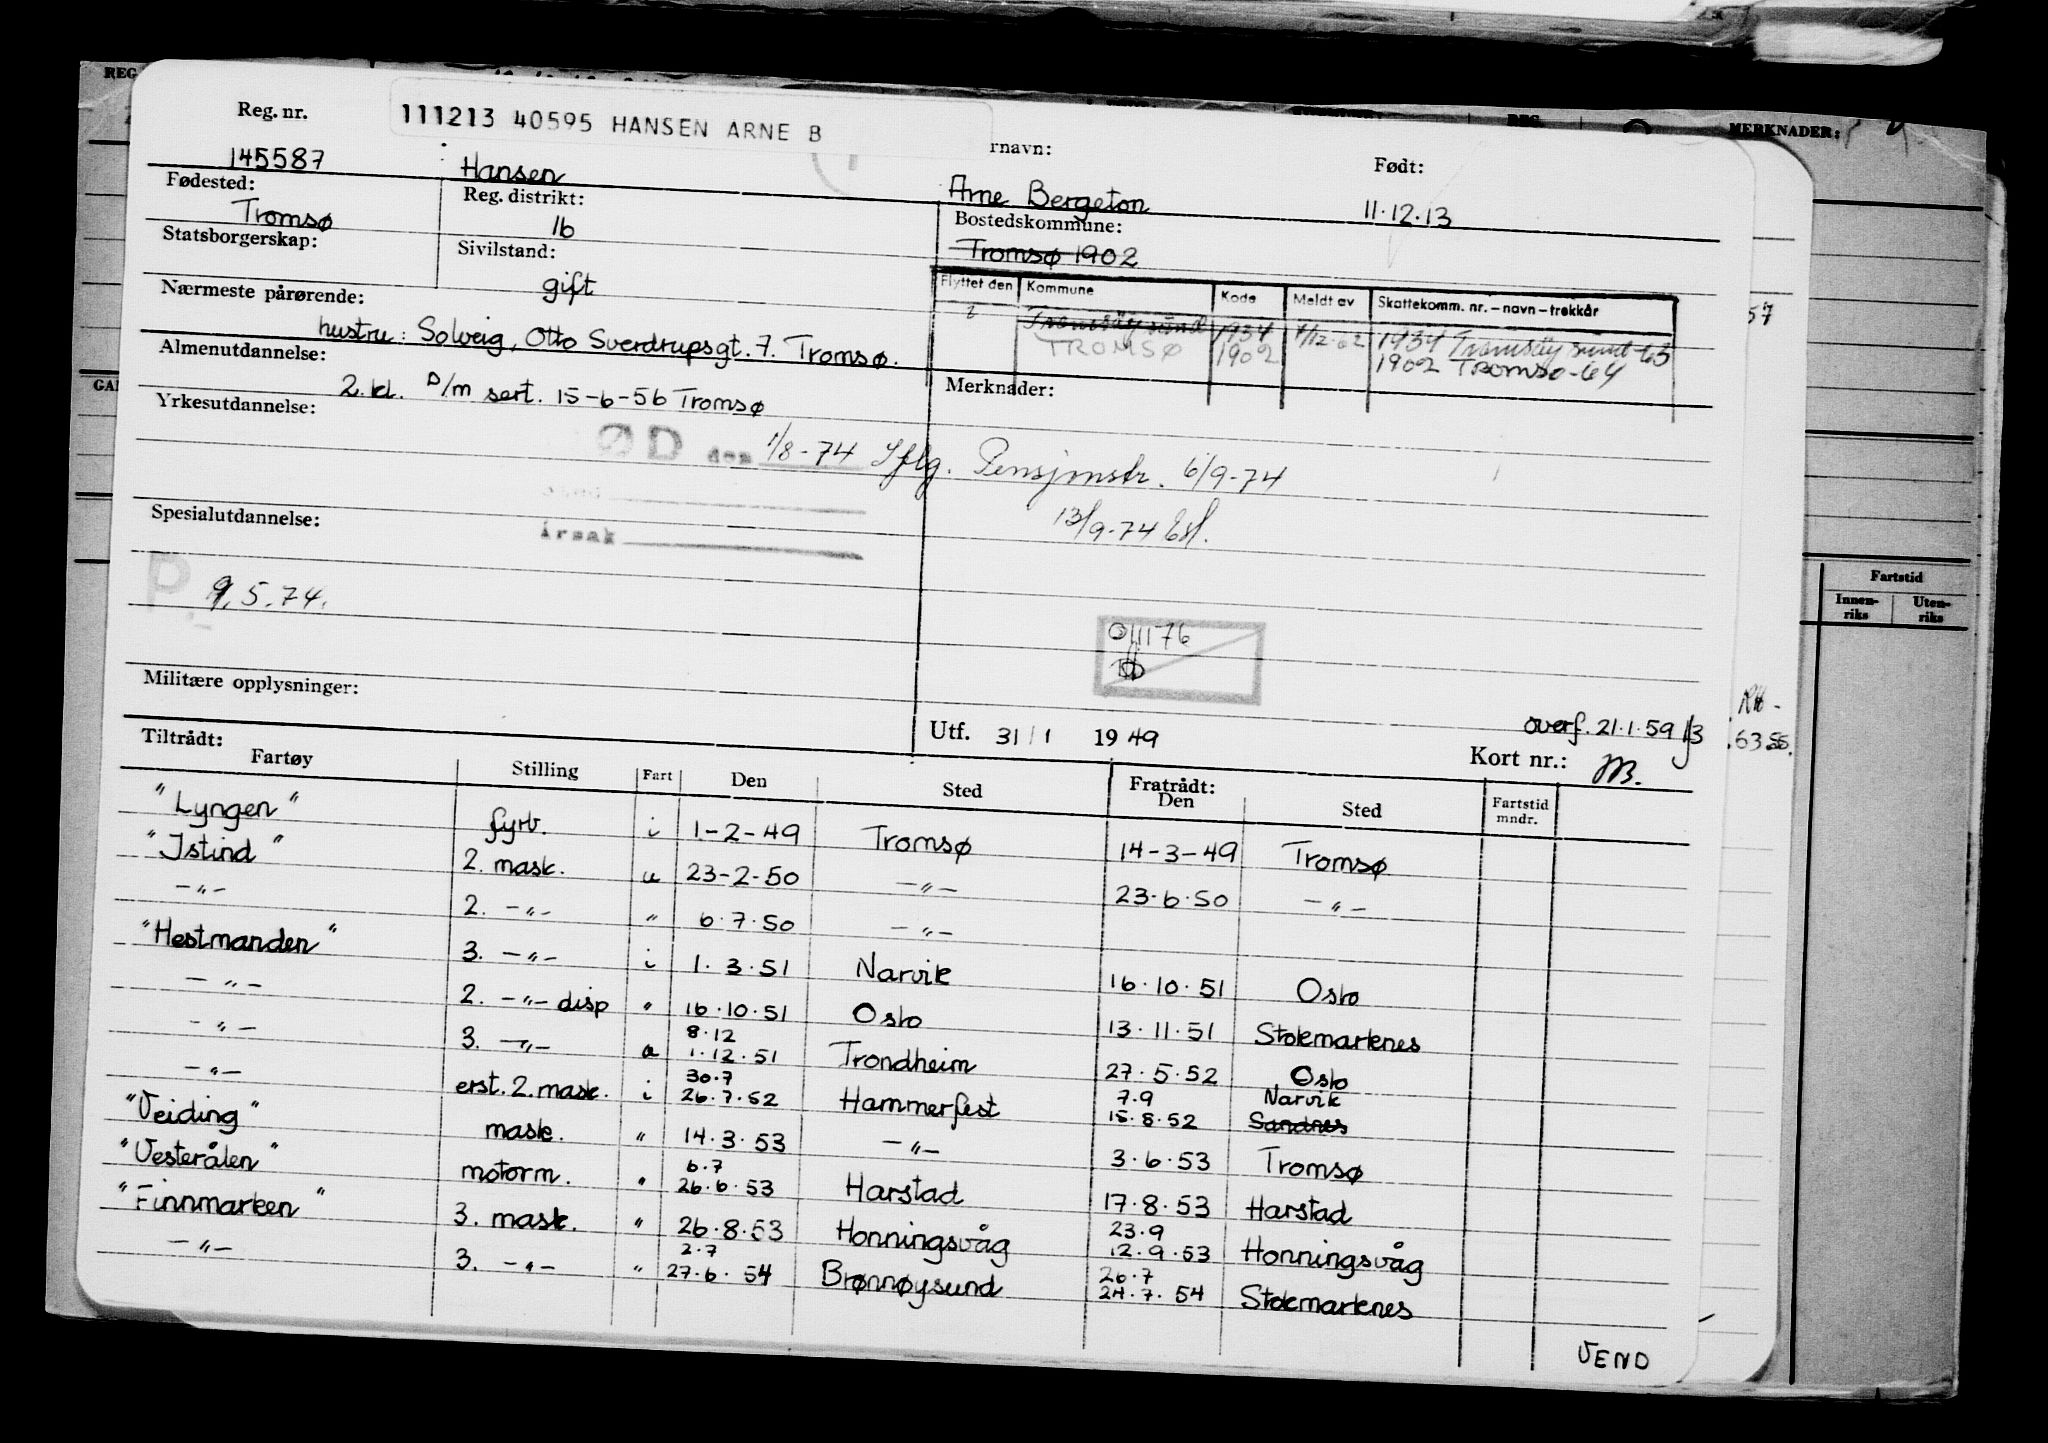 REG.
REG.
MERKNADER:
111213 40595 HANSEN ARNE B
Reg. nr.
rnavn:
Født:
145587
Hansen
Arne Bergeton
11.12.13
Fødested:
Reg. distrikt:
Bostedskommune:
Tromsø
16
Tromsø 1902
Statsborgerskap:
Sivilstand:
gift
Flyttet den
Kommune
Kode
Meldt av
Skattekomm. nr. – navn – trekkår
Nærmeste pårørende:
Tromsøysund 1934 4/12-62 1934 Tromsøysund-63
TROMSØ 1902 1902 Tromsø-64
hustru: Solveig, Otto Sverdrupsgt. 7. Tromsø.
57
Almenutdannelse:
Merknader:
2. kl. D/m sert. 15-6-56 Tromsø
Yrkesutdannelse:
ØD den 1/8-74 Iflg. Pensjonstr. 6/9-74
13/9-74
Spesialutdannelse:
årsak
P
9.5.74.
Fartstid
Innen-
riks
Uten-
riks
Militære opplysninger:
Utf. 31/1 1949
overf. 21.1.59
Kort nr.:
Tiltrådt:
Fartøy
Stilling
Fart
Den
Sted
Fratrådt:
Den
Sted
Fartstid
mndr.
"Lyngen" fyrb. i 1-2-49 Tromsø 14-3-49 Tromsø
"Istind" 2. mask. u 23-2-50 —"— 23.6.50 —"—
—"— 2. —"— " 6.7.50 —"—
"Hestmanden" 3. —"— i 1.3.51 Narvik 16.10.51 Oslo
—"— 2. —"— disp " 16.10.51 Oslo 13.11.51 Stokmarknes
8.12
—"— 3. —"— u 1.12.51 Trondheim 27.5.52 Oslo
30.7 7.9 Narvik
—"— erst. 2. mask. i 26.7.52 Hammerfest 15.8.52 Sandnes
"Veiding" mask. " 14.3.53 —"— 3.6.53 Tromsø
6.7
"Vesterålen" motorm. " 26.6.53 Harstad 17.8.53 Harstad
23.9
"Finnmarken" 3. mask. " 26.8.53 Honningsvåg 12.9.53 Honningsvåg
2.7 26.7
—"— 3. —"— " 27.6.54 Brønnøysund 24.7.54 Stokmarknes
VEND